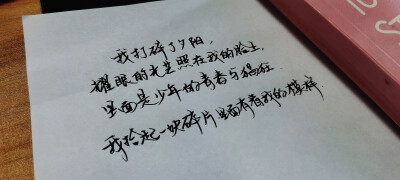 我打碎了夕阳,
耀眼的光芒照在我的脸上,
里面是少年的青春与猖狂.
我拾起一块碎片里面有着我的模样.